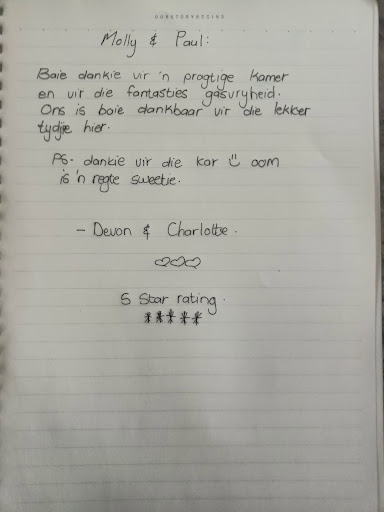 OURSTORYBEGINS
Molly & Paul:
Baie dankie vir 'n pragtige kamer
en vir die fantasties gasvryheid.
Ons is baie dankbaar vir die lekker
tydjie hier.
PS- dankie vir die kar oom
is 'n regte sweetie.
- Devon & Charlotte.
5 Star rating.